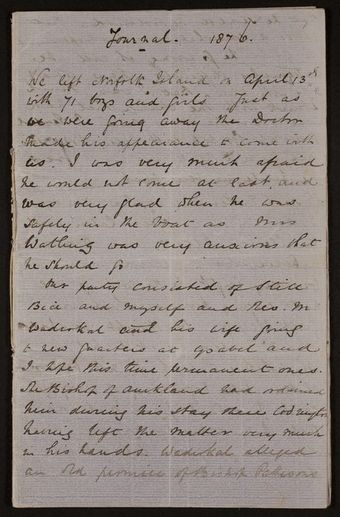 Journal. 1876.
We left Norfolk Island on April 13th
with 71 boys and girls Just as
we were going away the Doctor
made his appearance to come with
us. I was very much afraid
he would not come at last, and
was very glad when he was
safely in the boat as Mrs
was very anxious that
he should go
Our party consisted of Still
Bice and myself and Rev. M
Wadrokal and his wife going
to new quarters at Ysabel and
I hope this time permanent ones.
The Bishop of Auckland had ordained
him during his stay there Codrington
having left the matter very much
in his hands. Wadrokal alleged
an old promise of Bishop Pattesons